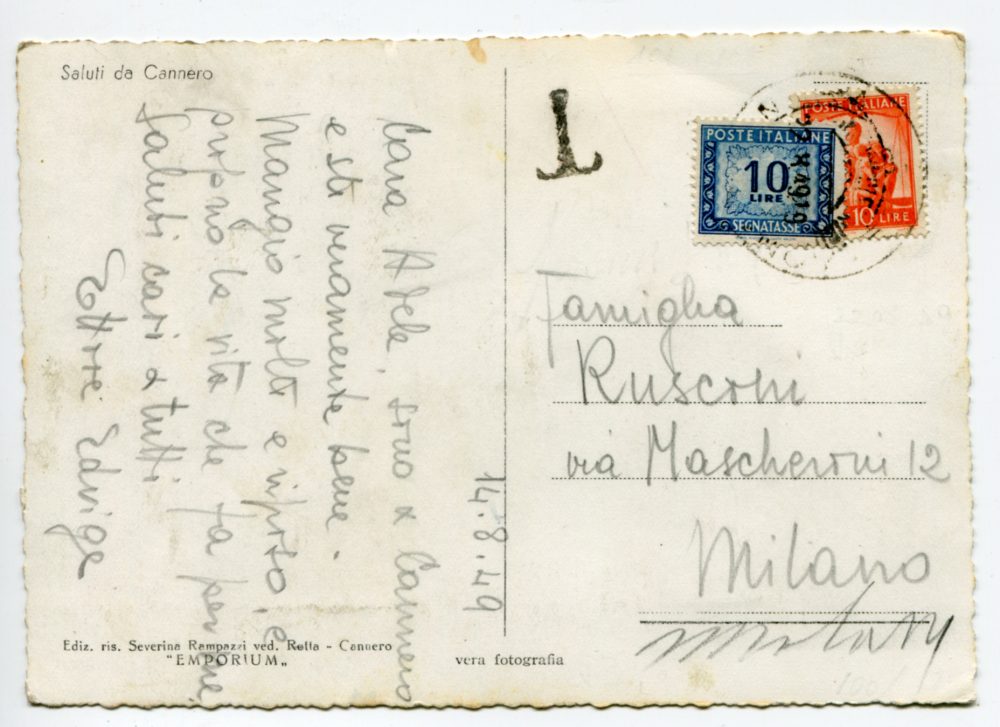 Saluti da Cannero
Cara Adele, sono a Cannero
e sto veramente bene.
Mangio molto e riposo, è
proprio la vita che fa per me
Saluti cari a tutti
Ettore Edvige
14.8.49
Ediz. ris. Severina Rampazzi ved. Retta - Cannero
"EMPORIUM„
vera fotografia
T
POSTE ITALIANE
10
LIRE
SEGNATASSE
POSTE ITALIANE
10 LIRE
Famiglia
Rusconi
via Mascheroni 12
Milano